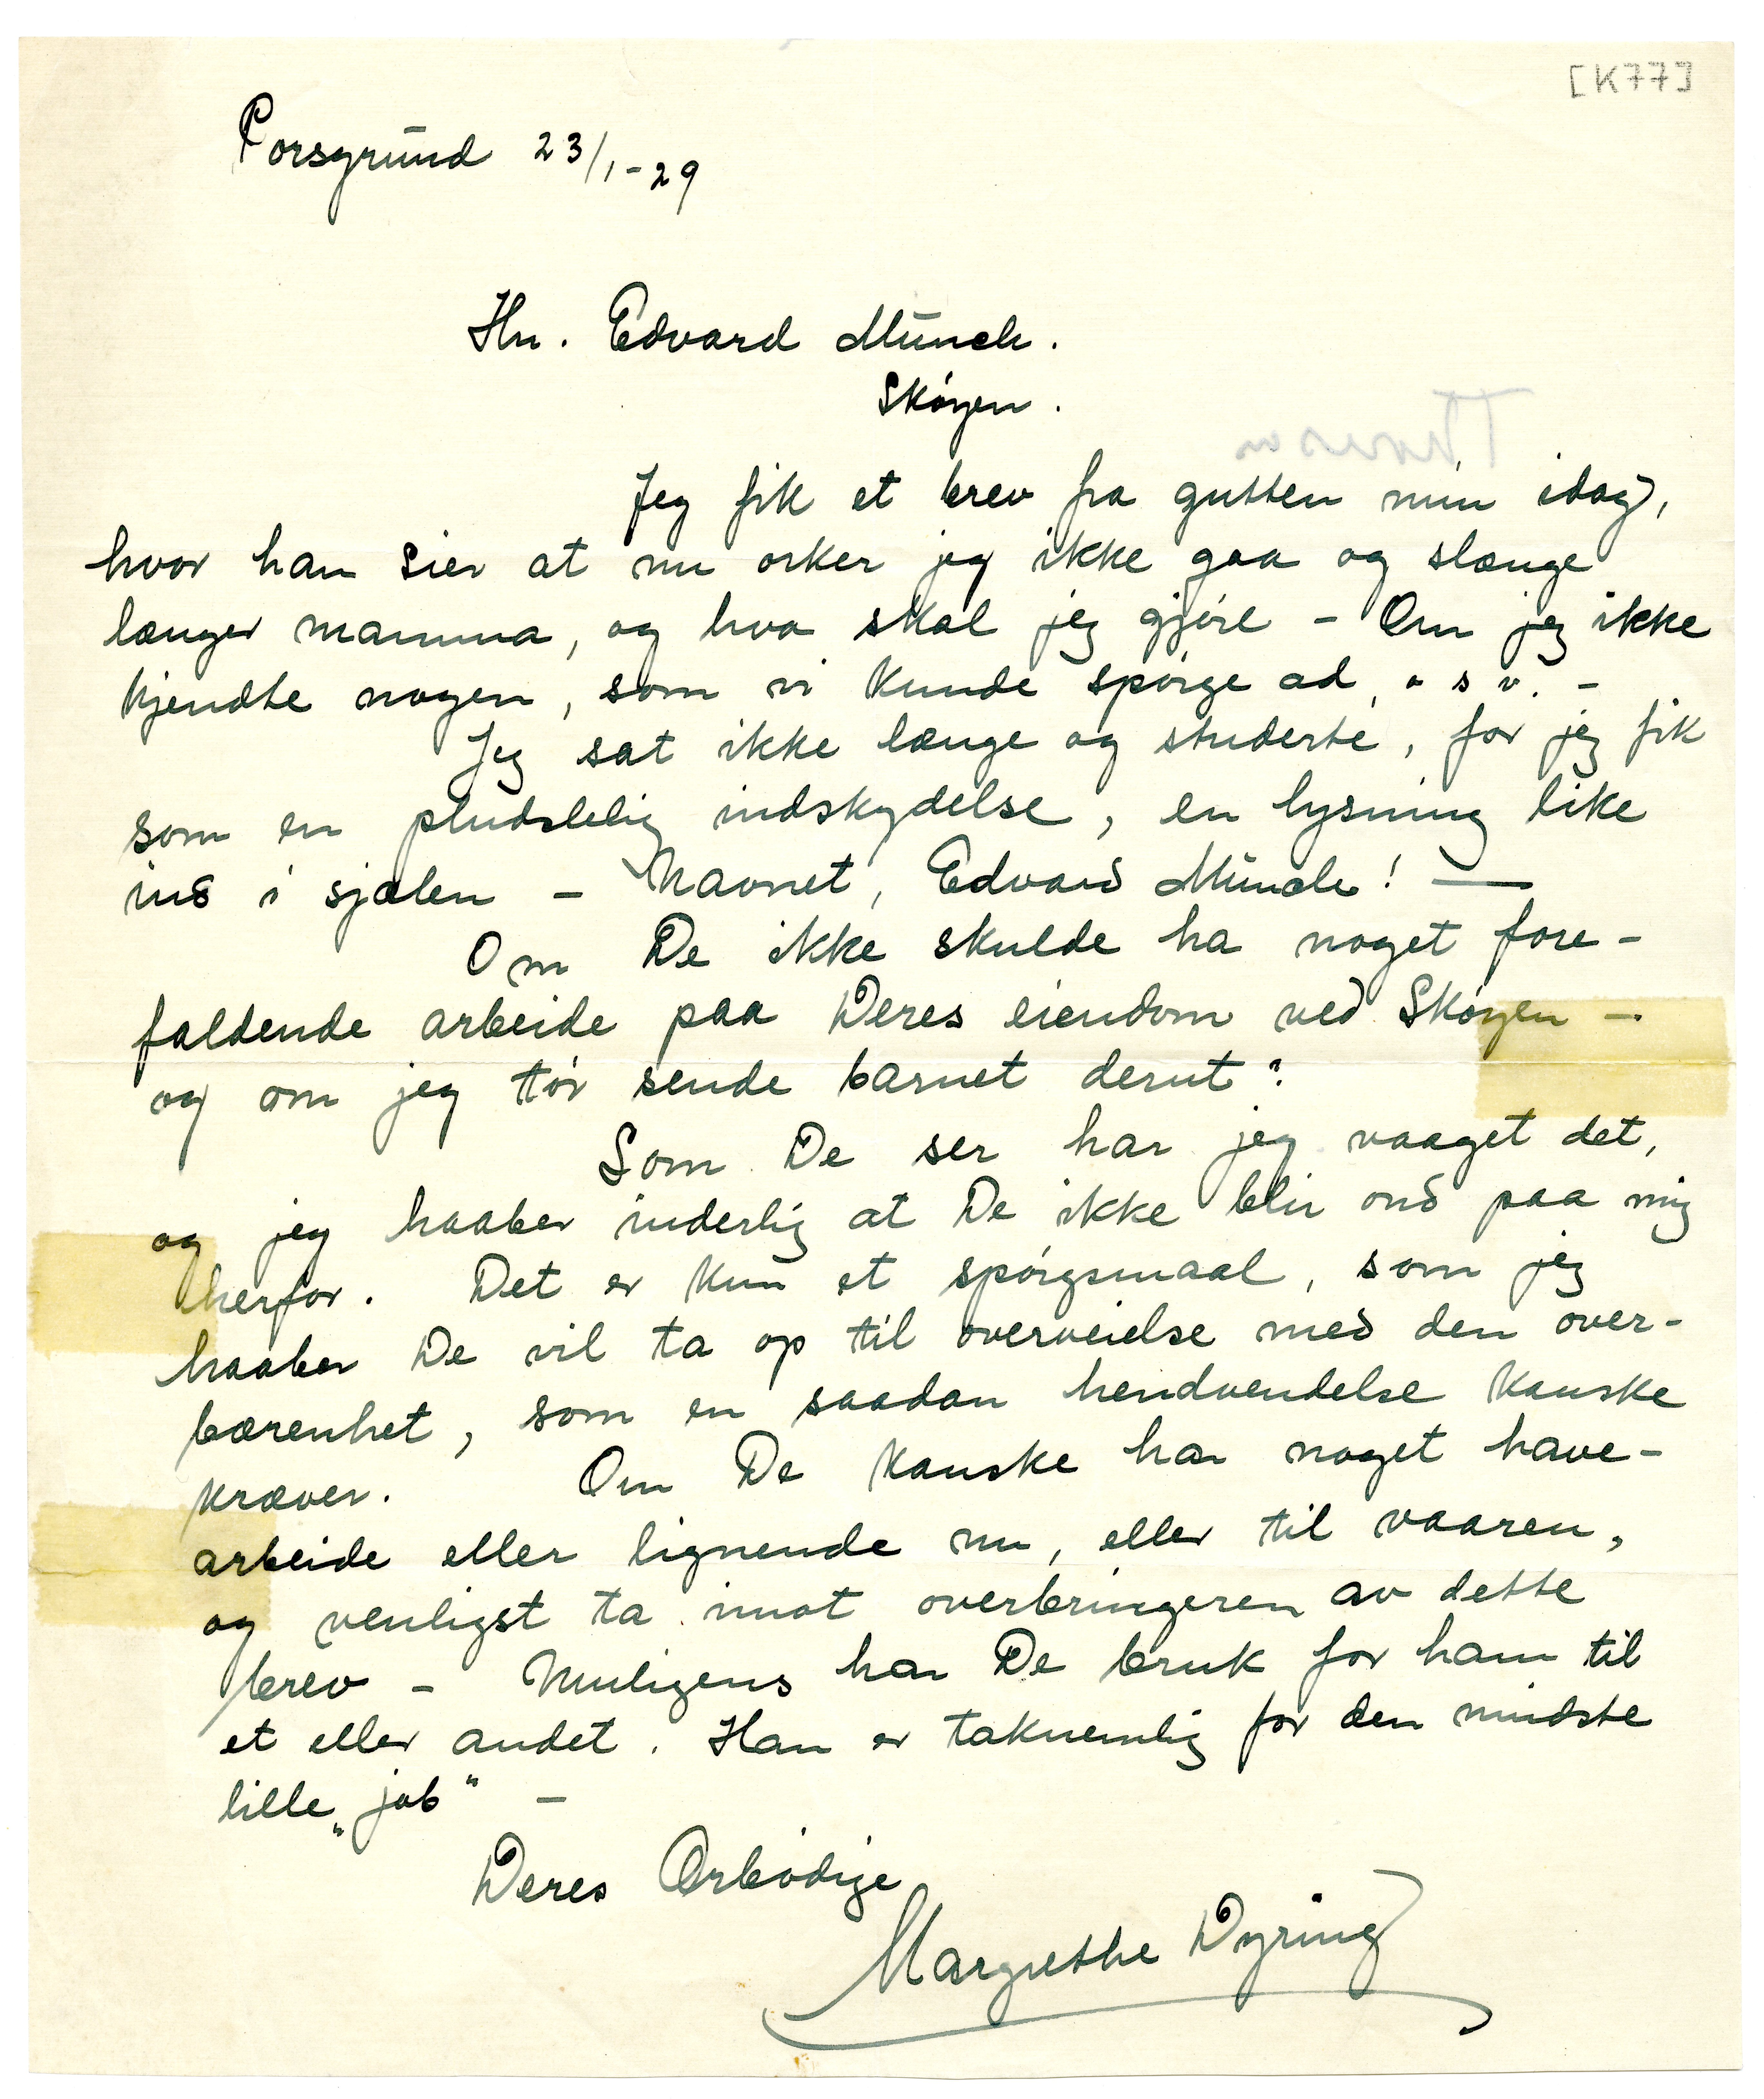 [K77]
Porsgrund 23/1-29
Hr. Edvard Munch.
Skøyen.
Jeg fik et brev fra gutten min idag,
hvor han sier at nu orker jeg ikke gaa og slænge
længer mamma, og hva skal jeg gjøre - Om jeg ikke
kjendte nogen, som vi kunde spørge ad, o s v. -
Jeg sat ikke længe og studerte, for jeg fik
som en pludslelig indskydelse, en lysning like
ind i sjælen - Navnet, Edvard Munch! —
Om De ikke skulde ha noget fore-
faldende arbeide paa Deres eiendom ved Skøyen -
og om jeg tør sende barnet derut?
Som De ser har jeg vaaget det,
og jeg haaber inderlig at De ikke blir ond paa mig
herfor. Det er kun et spørgsmaal, som jeg
haaber De vil ta op til overveielse med den over-
bærenhet, som en saadan hendvendelse kanske
kræver. Om De kanske har noget have-
arbeide eller lignende nu, eller til vaaren,
og venligst ta imot overbringeren av dette
brev - Muligens har De bruk for ham til
et eller andet. Han er taknemlig for den mindste
lille „job" -
Deres Ærbødige
Margrethe Dyring